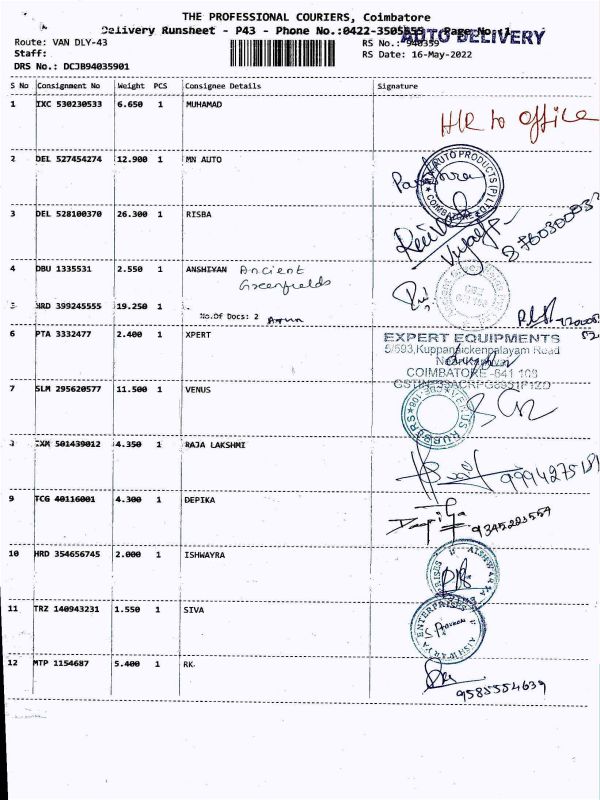 THE PROFESSIONAL COURIERS, Coimbatore
Delivery Runsheet - P43 - Phone No.:0422-3505555 Page No.:1
AUTO DELIVERY
Route: VAN DLY-43
RS No.: 940359
Staff:
RS Date: 16-May-2022
DRS No.: DCJB94035901
S No Consignment No Weight PCS Consignee Details Signature
1 IXC 530230533 6.650 1 MUHAMAD
H/R to office
2 DEL 527454274 12.900 1 MN AUTO
AUTO PRODUCTS (P) LTD
COIMBATORE
3 DEL 528100370 26.300 1 RISBA
4 DBU 1335531 2.550 1 ANSHIYAN Ancient
Greenfields
5 HRD 399245555 19.250 1
No.Of Docs: 2 Arun
6 PTA 3332477 2.400 1 XPERT
EXPERT EQUIPMENTS
5/593,Kuppanaickenpalayam Road
COIMBATORE -641 108
7 SLM 295620577 11.500 1 VENUS
VENUS RUBBERS
8 IXM 501439012 4.350 1 RAJA LAKSHMI
9994275181
9 TCG 40116001 4.300 1 DEPIKA
9345203559
10 HRD 354656745 2.000 1 ISHWAYRA
AISHWARYA
11 TRZ 140943231 1.550 1 SIVA
AISHWARYA ENTERPRISES
12 MTP 1154687 5.400 1 RK.
9585554639